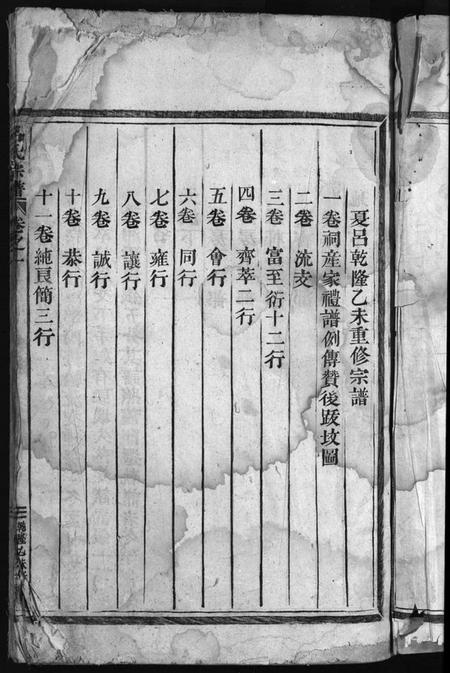 夏呂乾隆乙未重修宗譜
一卷祠産家禮譜例傳贊後䟦坟圖
二卷 流支
三卷 富至衍十二行
四卷 齊萃二行
五卷 會行
六卷 同行
七卷 雍行
八卷 讓行
九卷 誠行
十卷 恭行
十一卷純良簡三行
氏宗譜 卷之一
乾隆乙未